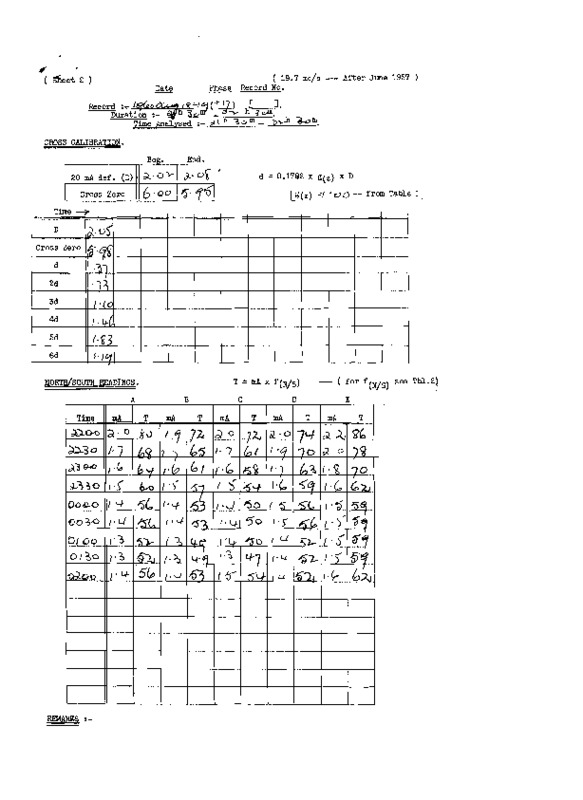 ( Sheet 2 ) ( 19.7 mc/s --- After June 1957 )
Date Phase Record No.
Record :-
Duration :-
Time Analysed :-
CROSS CALIBRATION.
Beg. End.
20 mA def. (D) 2.02 2.08 d = 0.1792 x x D
Cross Zero 6.00 5.95 -- from Table
Time →
D 2.05
Cross Zero 5.98
d .37
2d .73
3d 1.10
4d 1.46
5d 1.83
6d
NORTH/SOUTH READINGS. T = mA x f(N/S) --- ( for f(N/S) see Tbl.2)
A B C D E
Time mA T mA T mA T mA T mA T
2200 2.0 80 1.9 72 2.0 72 2.0 74 2.2 86
2230 1.7 68 1.7 65 1.7 61 1.9 70 2.0 78
2300 1.6 64 1.6 61 1.6 58 1.7 63 1.8 70
2330 1.5 60 1.5 57 1.5 54 1.6 59 1.6 62
0000 1.4 56 1.4 53 1.4 50 1.5 56 1.5 59
0030 1.4 56 1.4 53 1.4 50 1.5 56 1.5 59
0100 1.3 52 1.3 49 1.4 50 1.4 52 1.5 59
0130 1.3 52 1.3 49 1.3 47 1.4 52 1.5 59
2200 1.4 56 1.4 53 1.5 54 1.4 52 1.6 62
REMARKS :-